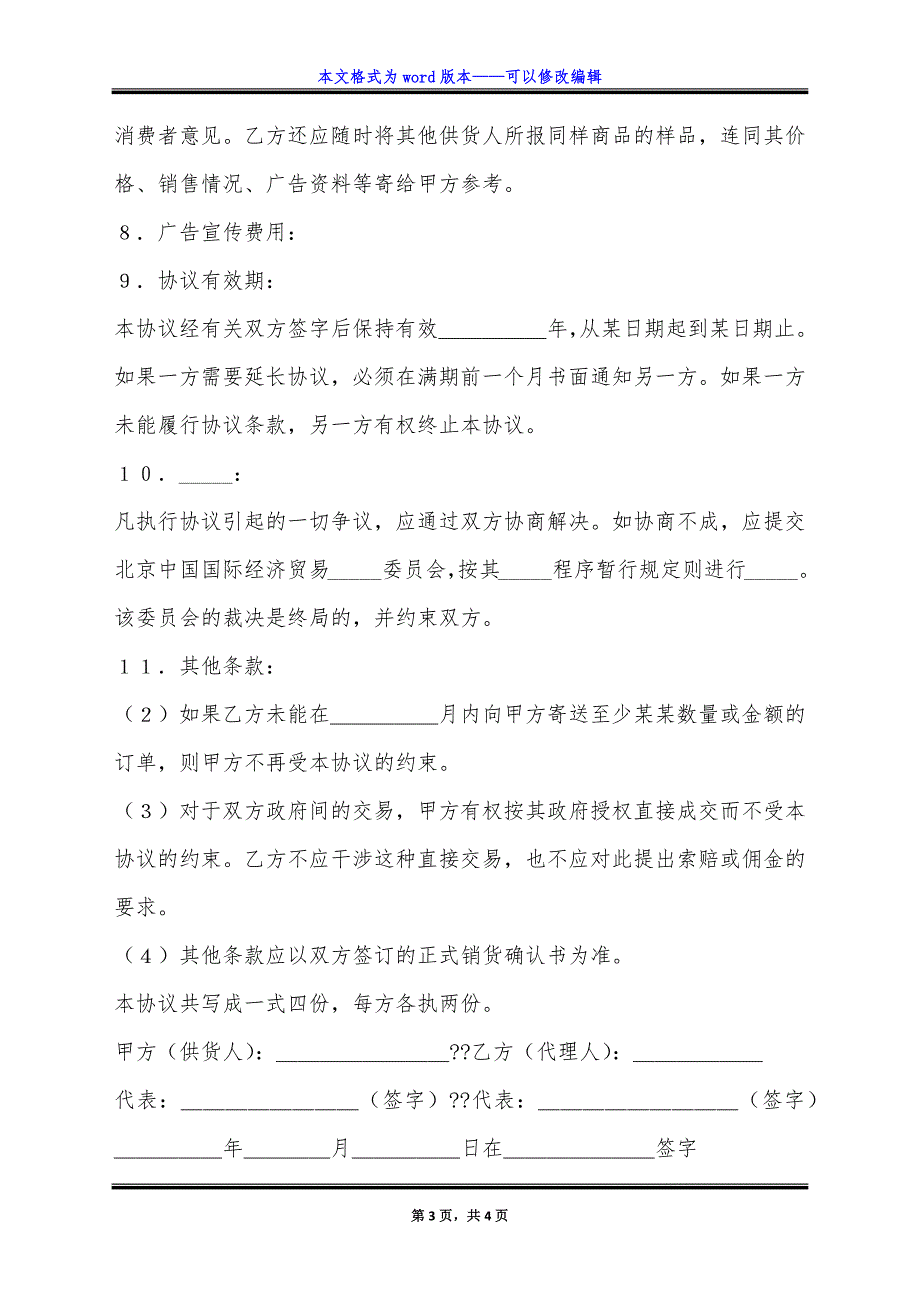 本文格式为 word 版本——可以修改编辑
消费者意见。乙方还应随时将其他供货人所报同样商品的样品，连同其价
格、销售情况、广告资料等寄给甲方参考。
８．广告宣传费用：
９．协议有效期：
本协议经有关双方签字后保持有效__________年，从某日期起到某日期止。
如果一方需要延长协议，必须在满期前一个月书面通知另一方。如果一方
未能履行协议条款，另一方有权终止本协议。
１０．_____：
凡执行协议引起的一切争议，应通过双方协商解决。如协商不成，应提交
北京中国国际经济贸易_____委员会，按其_____程序暂行规定则进行_____。
该委员会的裁决是终局的，并约束双方。
１１．其他条款：
（２）如果乙方未能在__________月内向甲方寄送至少某某数量或金额的
订单，则甲方不再受本协议的约束。
（３）对于双方政府间的交易，甲方有权按其政府授权直接成交而不受本
协议的约束。乙方不应干涉这种直接交易，也不应对此提出索赔或佣金的
要求。
（４）其他条款应以双方签订的正式销货确认书为准。
本协议共写成一式四份，每方各执两份。
甲方（供货人）：________________??乙方（代理人）：____________
代表：________________（签字）??代表：__________________（签字）
__________年________月__________日在______________签字
第 3 页，共 4 页